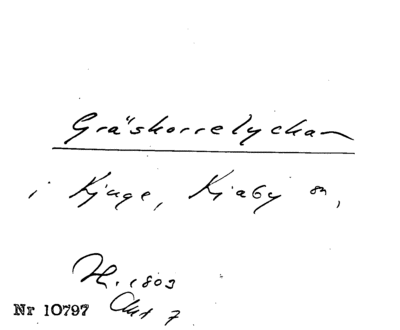 Gräskorrelyckan
i Kjuge, Kiaby sn,
H. 1803
Nr 10797 Akt 7